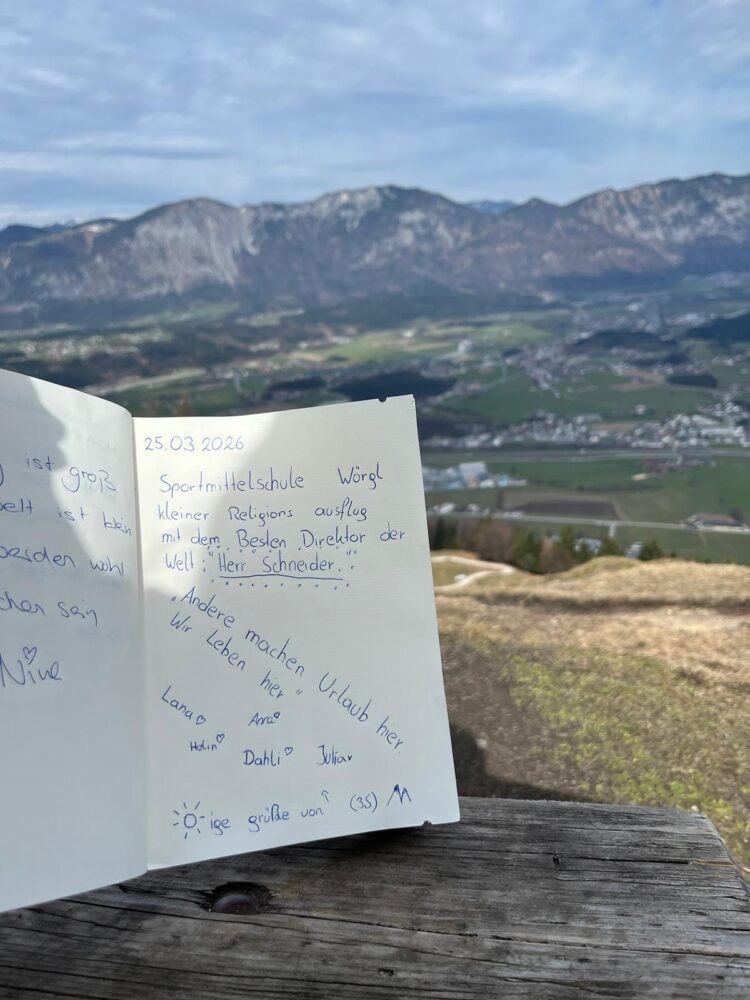 ist groß
ist klein
werden wohl
sein
Nine
25.03.2026
Sportmittelschule Wörgl
kleiner Religions ausflug
mit dem Besten Direktor der
Welt: "Herr Schneider."
"Andere machen Urlaub hier.
Wir Leben hier"
Lana Anna
Helin
Dahli Julia
ige größe von (3S)